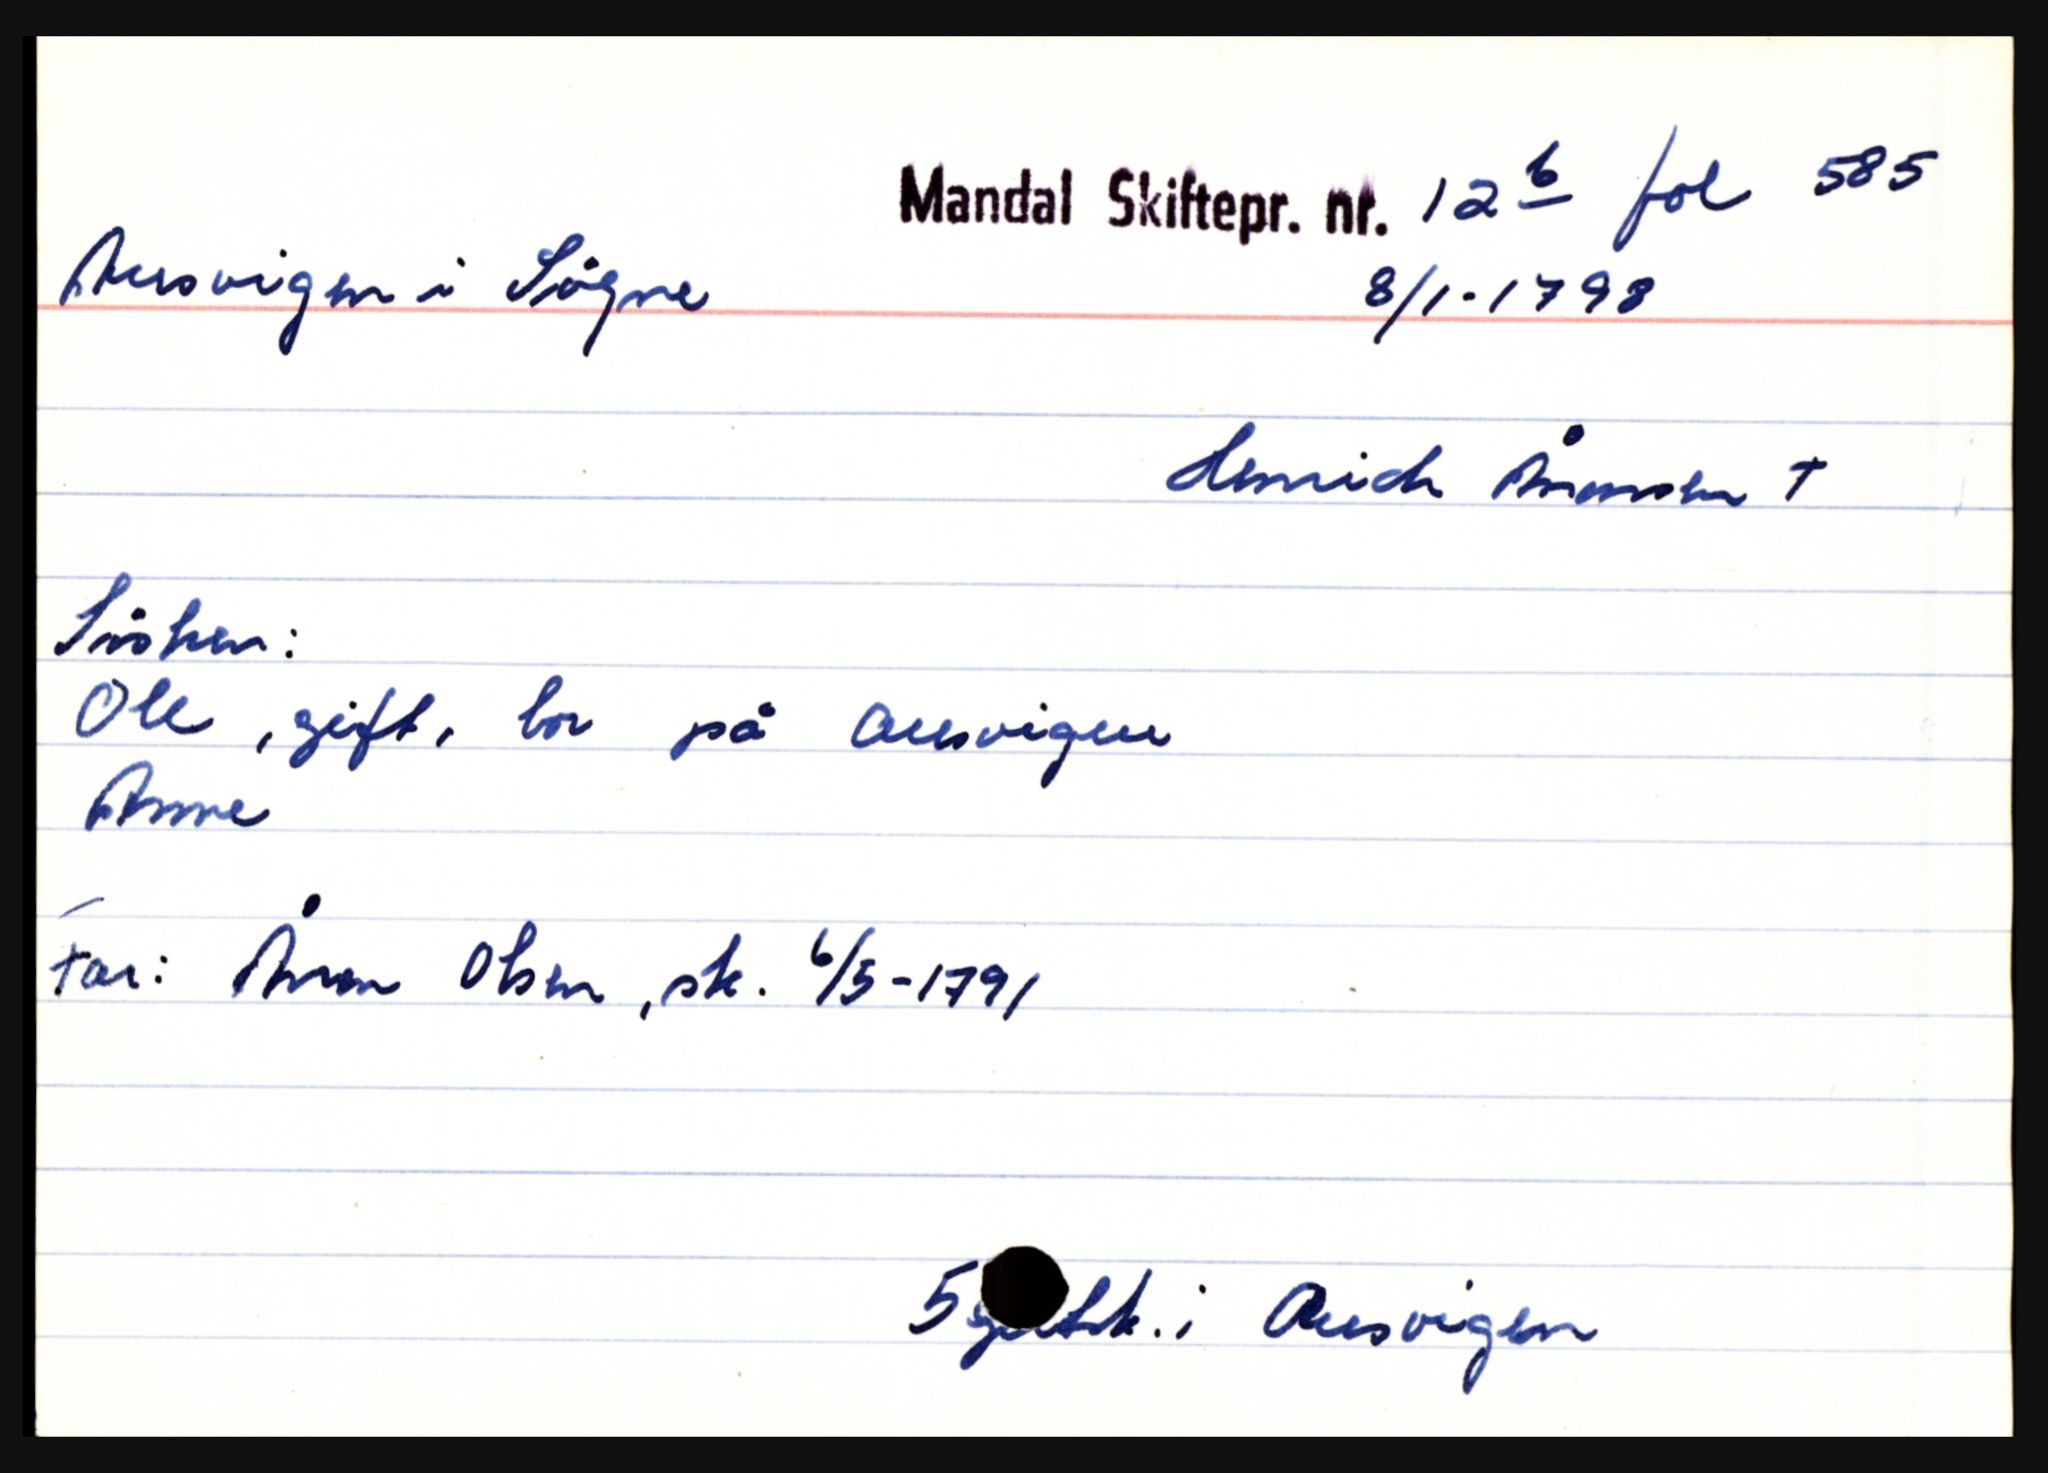 Mandal Skiftepr. nr. 12 b fol 585
Ausvigen i Søgne 8/1-1798
Henrich Åronsen †
Søsken:
Ole, gift, bor på Ausvigen
Anne
Far: Åron Olsen, sk. 6/5-1791
5 i Ausvigen